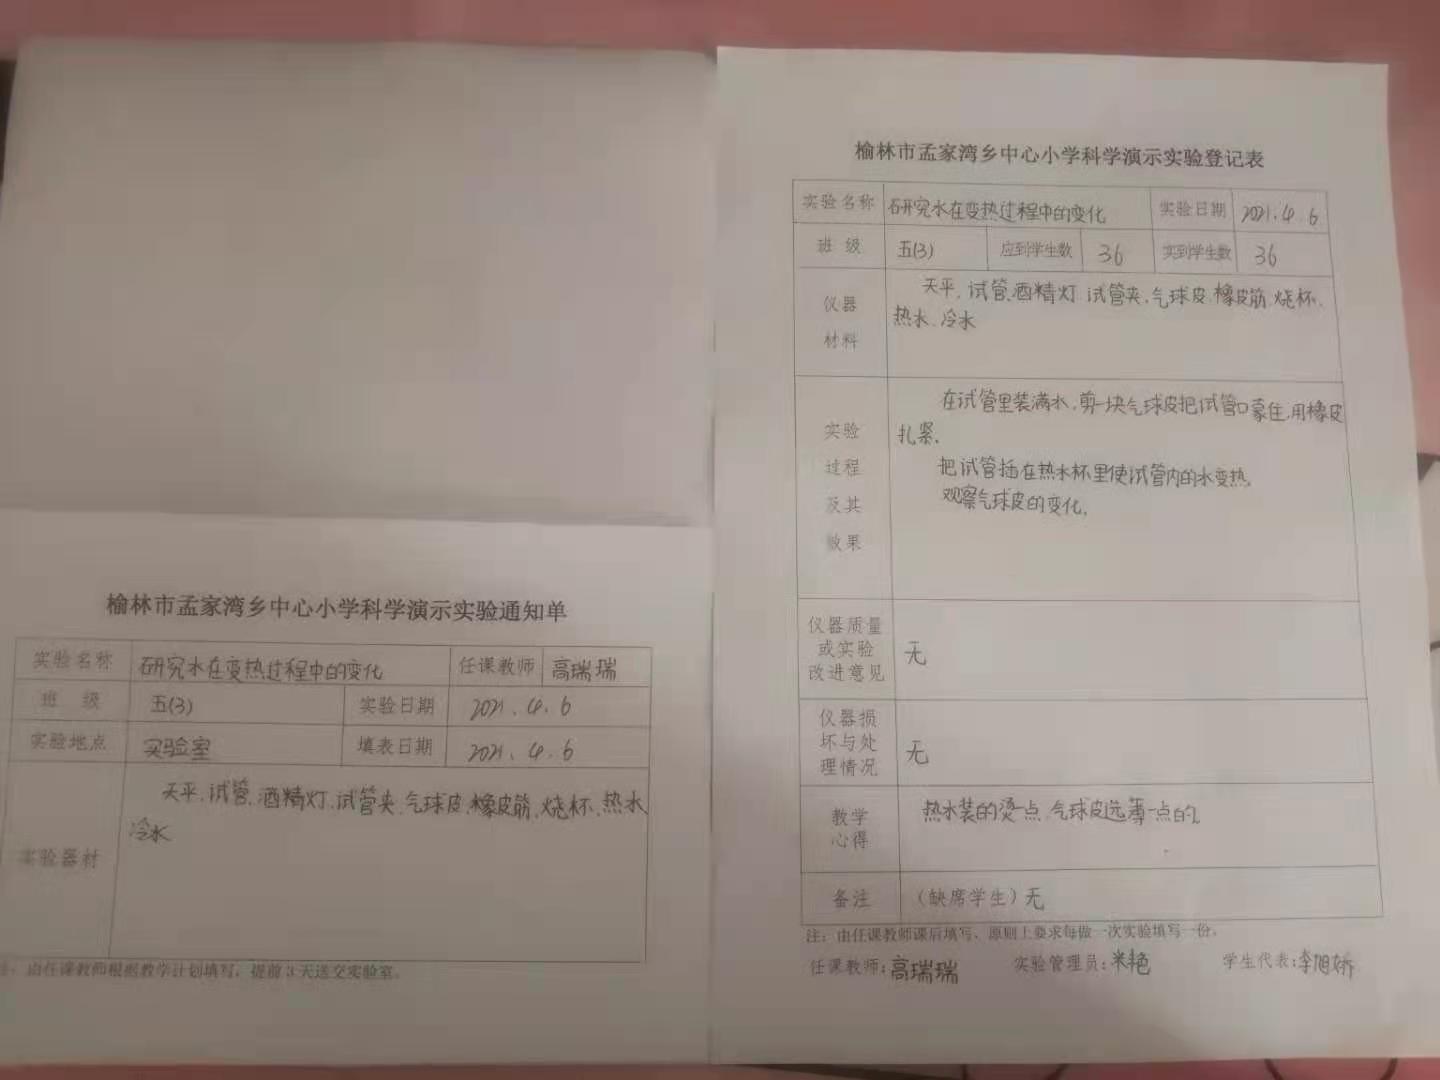 榆林市孟家湾乡中心小学科学演示实验通知单
实验名称 研究水在变热过程中的变化 任课教师 高瑞瑞
班 级 五(3) 实验日期 2021.4.6
实验地点 实验室 填表日期 2021.4.6
实验器材
天平、试管、酒精灯、试管夹、气球皮、橡皮筋、烧杯、热水
冷水
注：由任课教师根据教学计划填写，提前3天送交实验室。
榆林市孟家湾乡中心小学科学演示实验登记表
实验名称 研究水在变热过程中的变化 实验日期 2021.4.6
班 级 五(3) 应到学生数 36 实到学生数 36
仪器
材料
天平、试管、酒精灯、试管夹、气球皮、橡皮筋、烧杯、
热水、冷水
实验
过程
及其
效果
在试管里装满水，剪一块气球皮把试管口蒙住，用橡皮
扎紧，
把试管插在热水杯里使试管内的水变热，
观察气球皮的变化，
仪器质量
或实验
改进意见
无
仪器损
坏与处
理情况
无
教学
心得
热水装的烫一点，气球皮选薄一点的。
备注 （缺席学生）无
注：由任课教师课后填写，原则上要求每做一次实验填写一份。
任课教师：高瑞瑞 实验管理员：米艳 学生代表：李旭娇